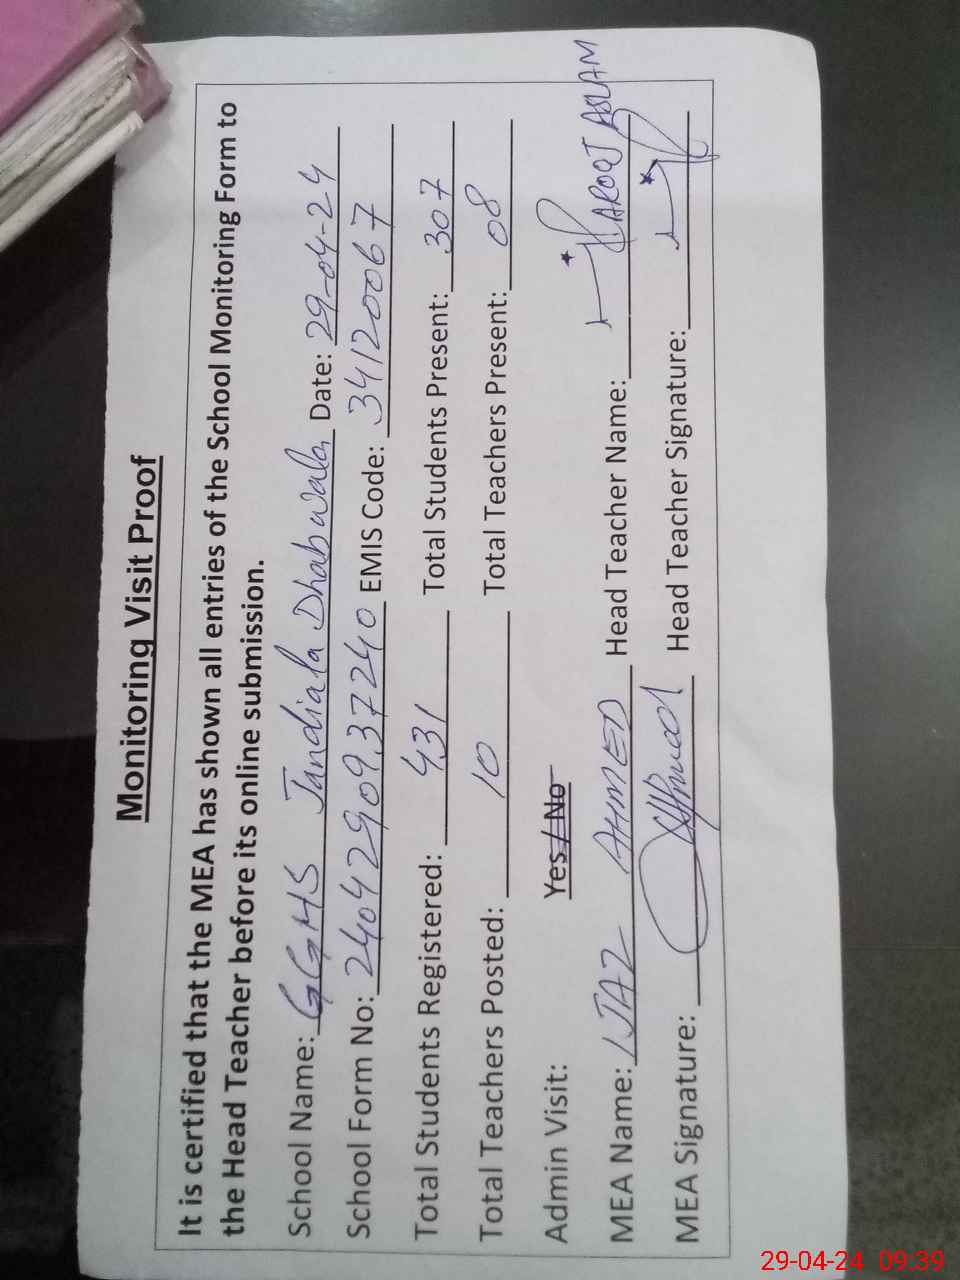 Monitoring Visit Proof
It is certified that the MEA has shown all entries of the School Monitoring Form to
the Head Teacher before its online submission.
School Name: GGHS Jandiala Dhabwala Date: 29-04-24
School Form No: 2404290937240 EMIS Code: 34120067
Total Students Registered: 431 Total Students Present: 307
Total Teachers Posted: 10 Total Teachers Present: 08
Admin Visit: Yes / No
MEA Name: IJAZ AHMED Head Teacher Name: ASLAM
MEA Signature: Head Teacher Signature:
29-04-24 09:39